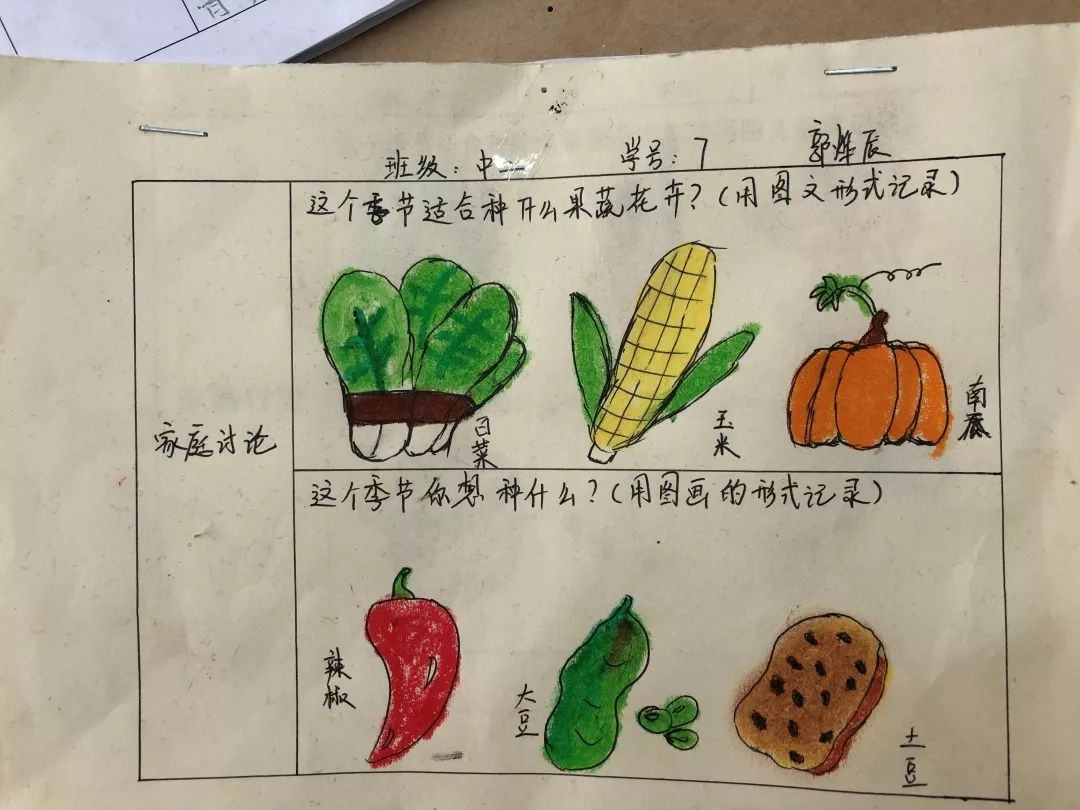 班级：中二 学号：7 郭烨辰
家庭讨论
这个季节适合种什么果蔬花卉？（用图文形式记录）
白菜
玉米
南瓜
这个季节你想种什么？（用图画的形式记录）
辣椒
大豆
土豆